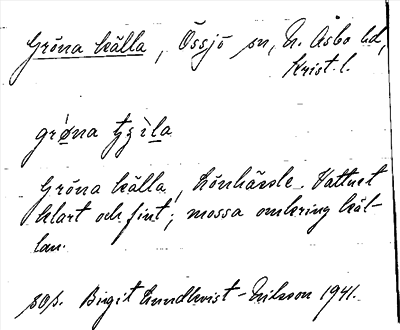 Gröna källa, Össjö sn, N. Åsbo hd,
Krist. l.
grø̀na tʃɛ̀la
Gröna källa, Lönhärde. Vattnet
klart och fint; mossa omkring käl-
lan.
sos. Birgit Lundkvist-Nilsson 1941.